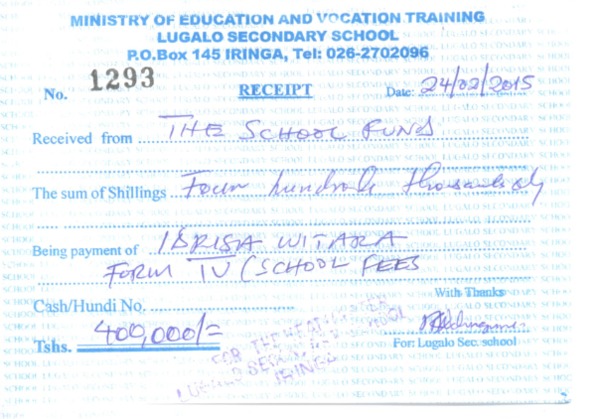 MINISTRY OF EDUCATION AND VOCATION TRAINING
LUGALO SECONDARY SCHOOL
P.O.Box 145 IRINGA, Tel: 026-2702096
No. 1293 RECEIPT Date: 24/02/2015
Received from THE SCHOOL FUNDS
The sum of Shillings Four hundreds thousands only
Being payment of WITARA
FORM IV (SCHOOL FEES
With Thanks
Cash/Hundi No.
Tshs. 400,000/=
For: Lugalo Sec. school
FOR THE HEADMASTER
LUGALO SECONDARY SCHOOL
IRINGA